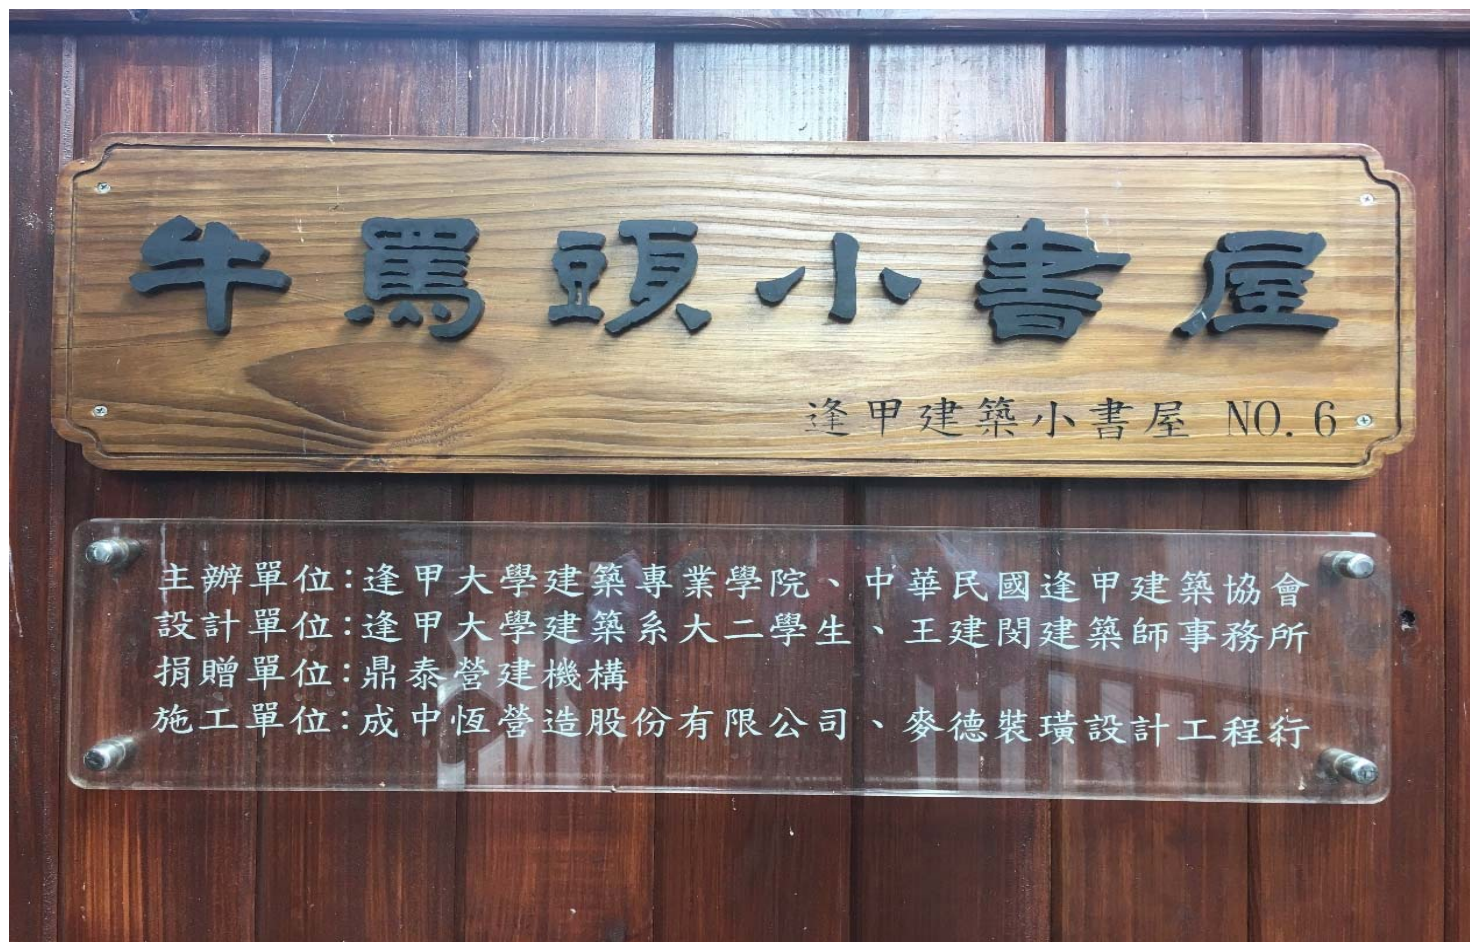 牛罵頭小書屋
逢甲建築小書屋 NO.6
主辦單位:逢甲大學建築專業學院、中華民國逢甲建築協會
設計單位:逢甲大學建築系大二學生、王建閔建築師事務所
捐贈單位:鼎泰營建機構
施工單位:成中恆營造股份有限公司、麥德裝璜設計工程行